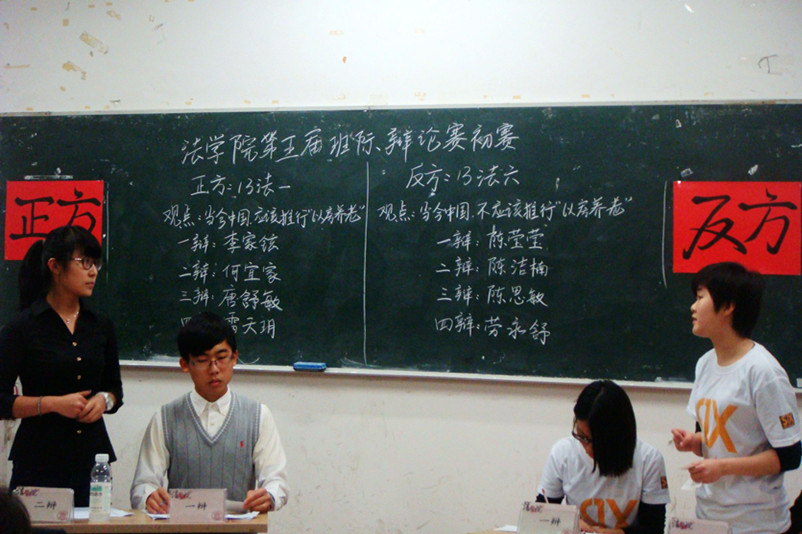 法学院第五届班际辩论赛初赛
正方:13法一
反方:13法六
正方
反方
观点:当今中国应该推行"以房养老"
观点:当今中国不应该推行"以房养老"
一辩:李家铉
二辩:何宜家
三辩:唐舒敏
四 雷天玥
一辩:陈莹莹
二辩:陈洁楠
三辩:陈思敏
四辩:劳永舒
二辩
一辩
一辩